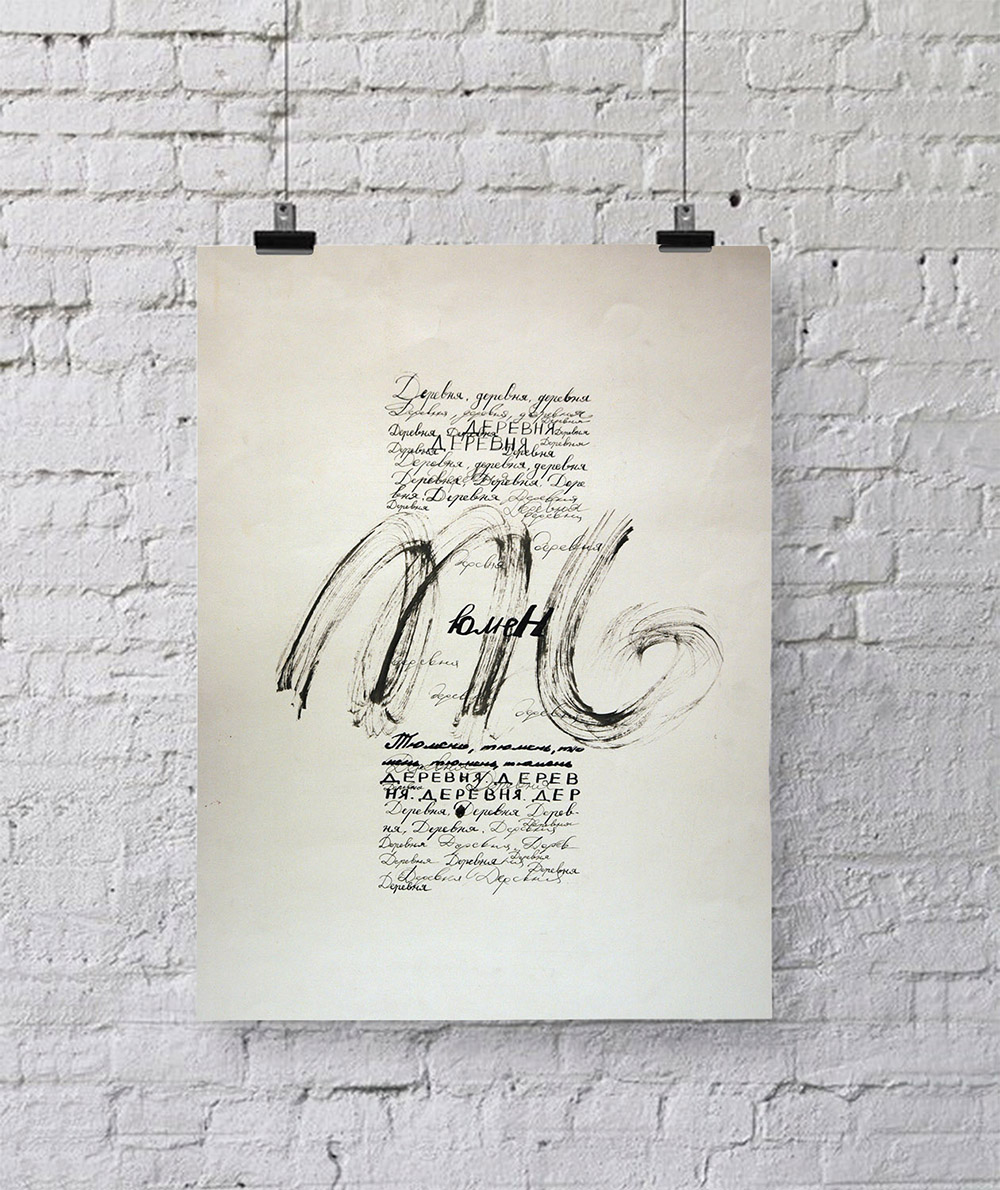 Деревня, деревня, деревня
Деревня, деревня, деревня
деревня
ДЕРЕВНЯ
Деревня Деревня Деревня
ДЕРЕВНЯ Деревня
Деревня Деревня
Деревня, деревня, деревня
Деревня, Деревня. Дере
вня. Деревня Деревня
Деревня Деревня
Деревня
деревня
деревня
Т
юмен
ь
деревня
дерев
деревн
Тюмень, тюмень, тю
мень, тюмень, тюмень
Деревня
ДЕРЕВНЯ. ДЕРЕВ
Деревня
НЯ. ДЕРЕВНЯ. ДЕР
Деревня. Деревня Дерев-
Деревня
ня, Деревня. Деревня
Деревня Деревня, Дерев
Деревня Деревня Деревня
Деревня
Деревня Деревня
Деревня